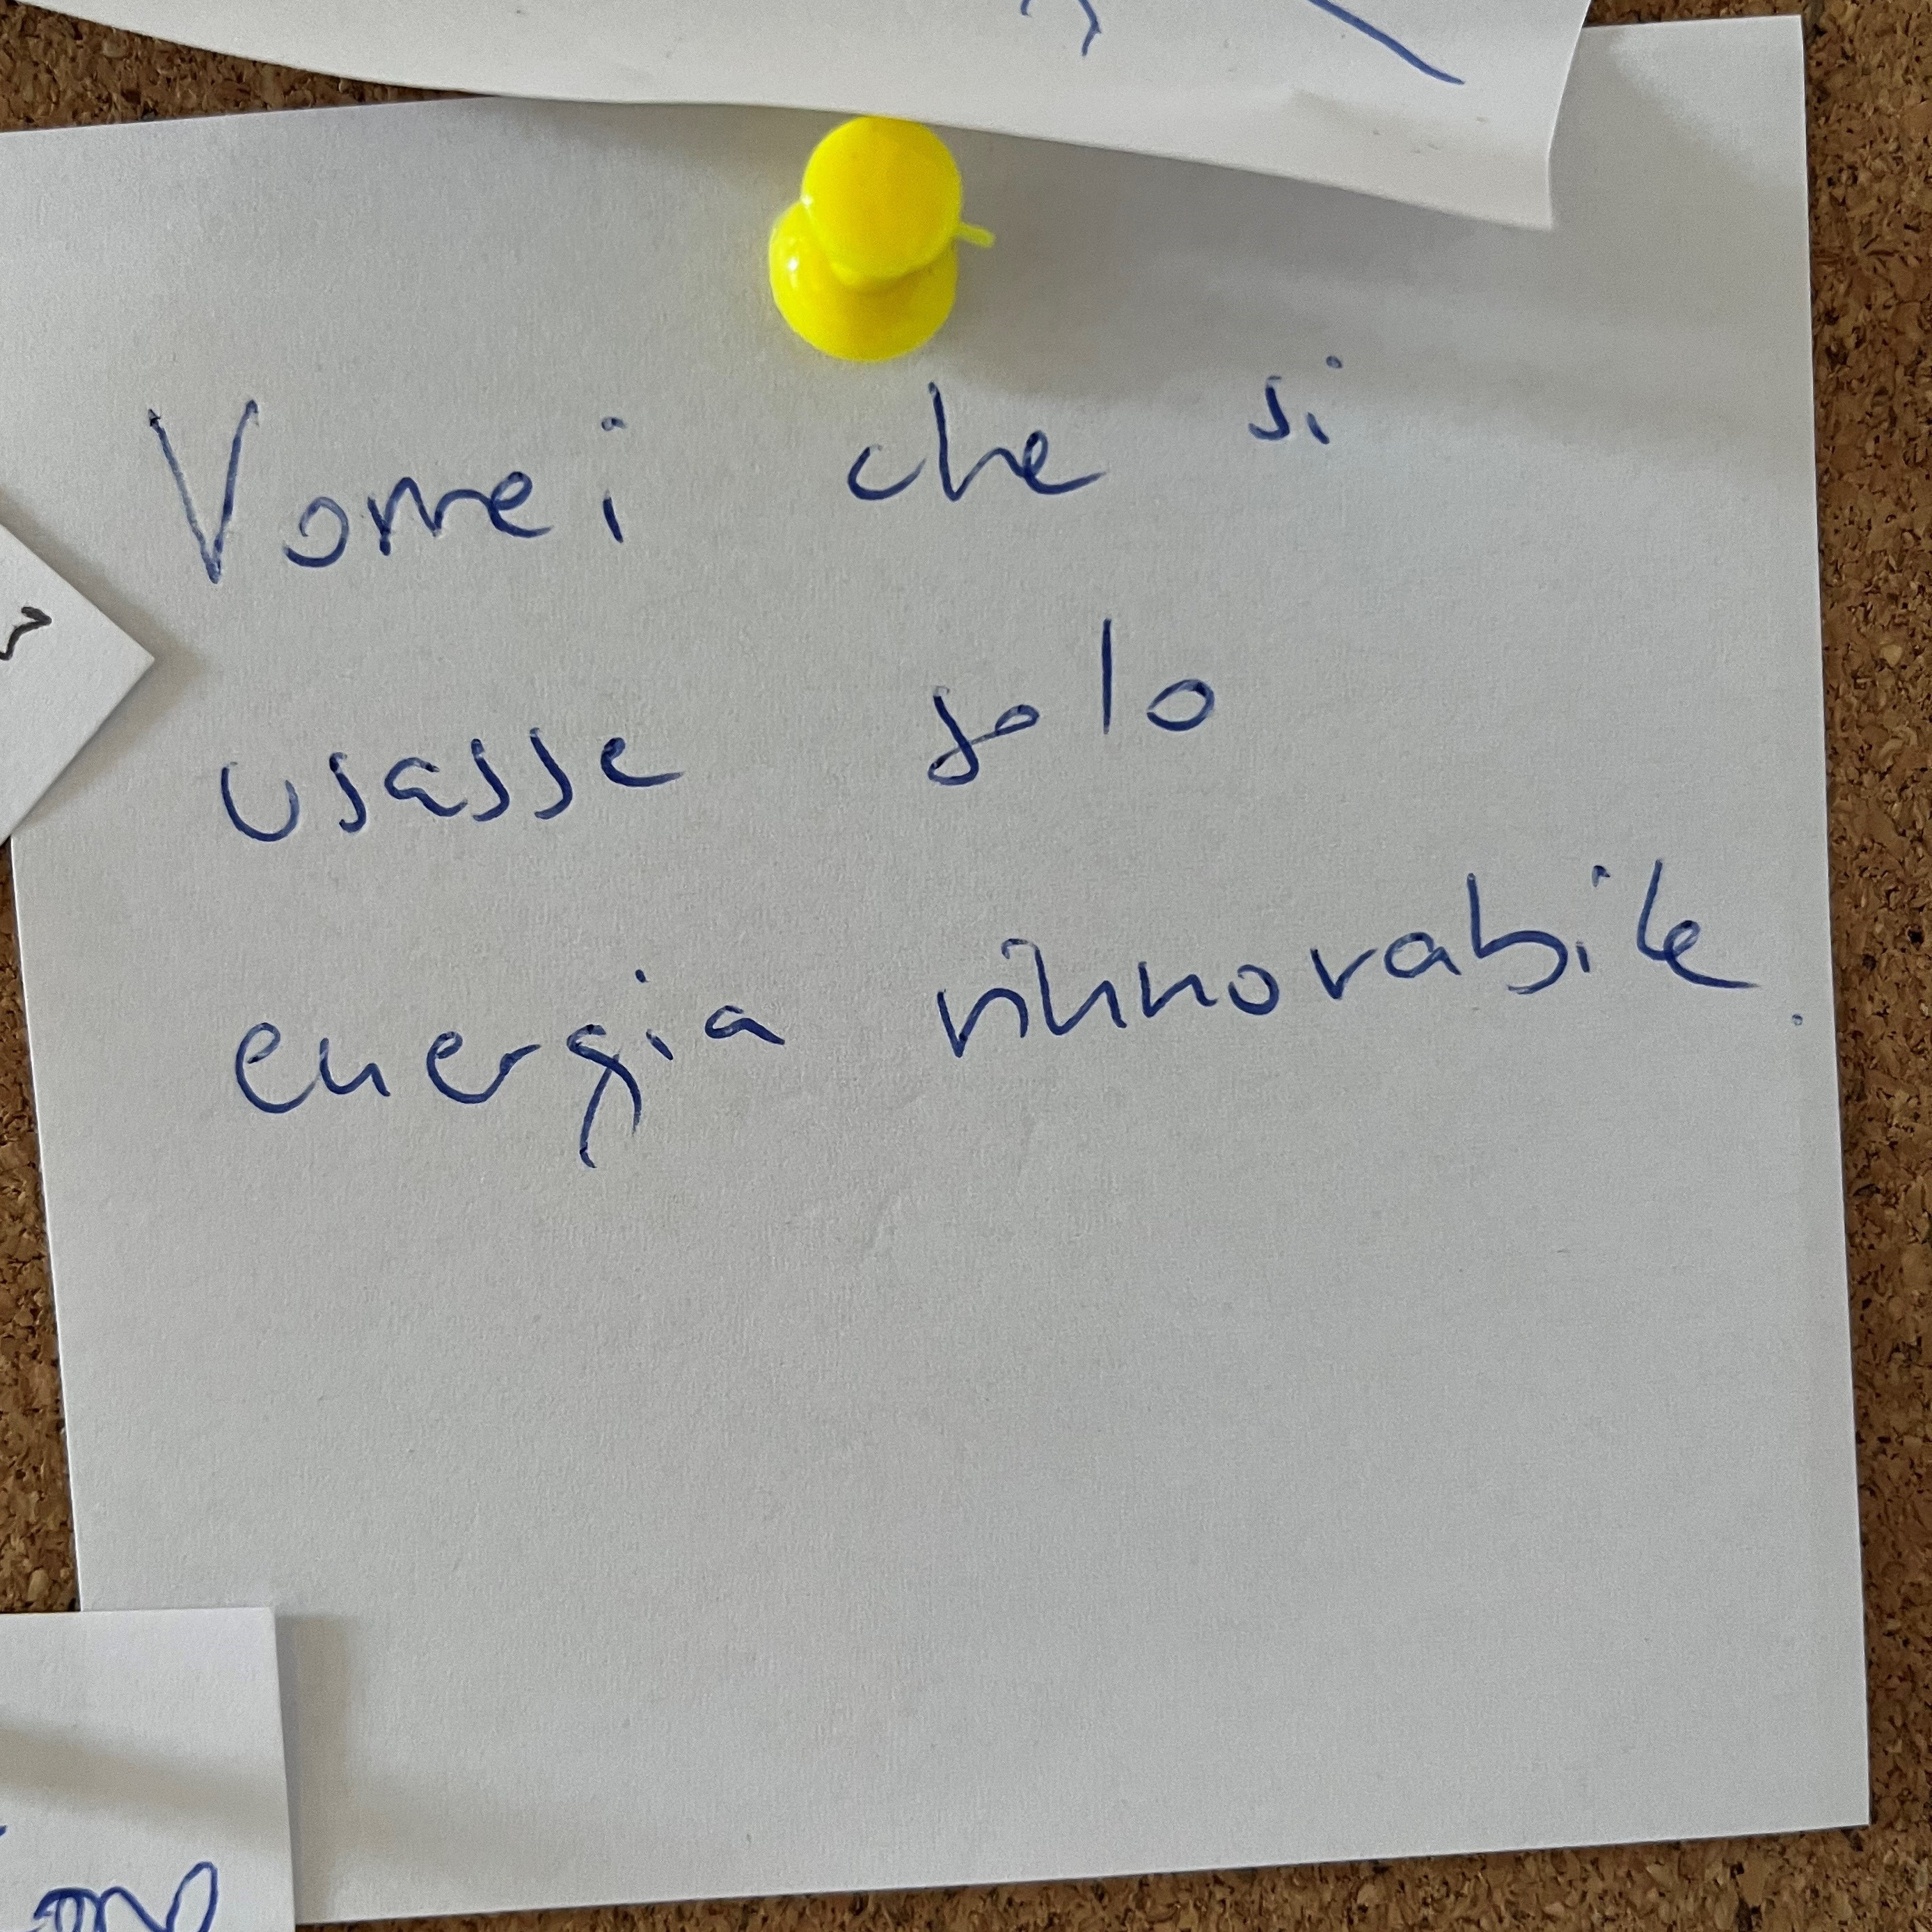 Vorrei che si
usasse solo
energia rinnovabile.